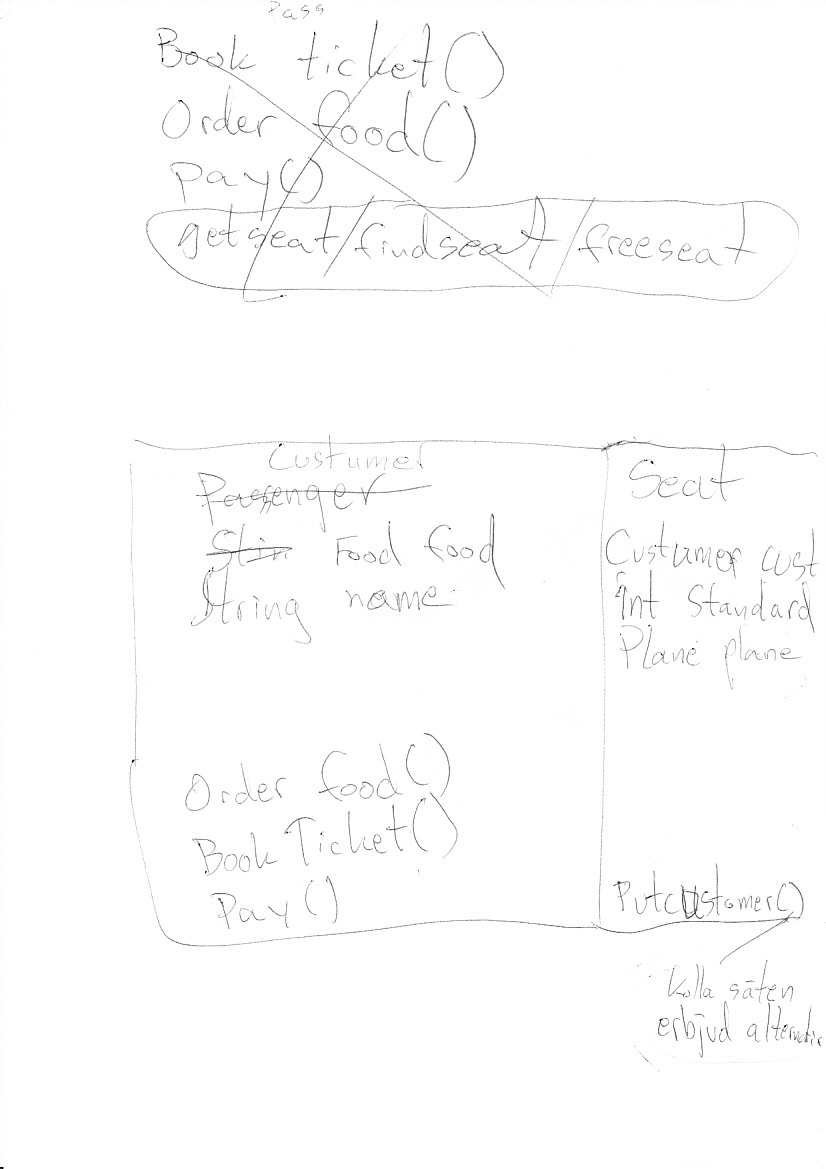 Pass
Book ticket()
Order food()
Pay()
getseat/findseat/freeseat
Custumer
Passenger
Strin Food food
String name
Order food()
Book Ticket()
Pay()
Seat
Custumer cust
Int Standard
Plane plane
Putcustomer()
Kolla säten
erbjud alternativ